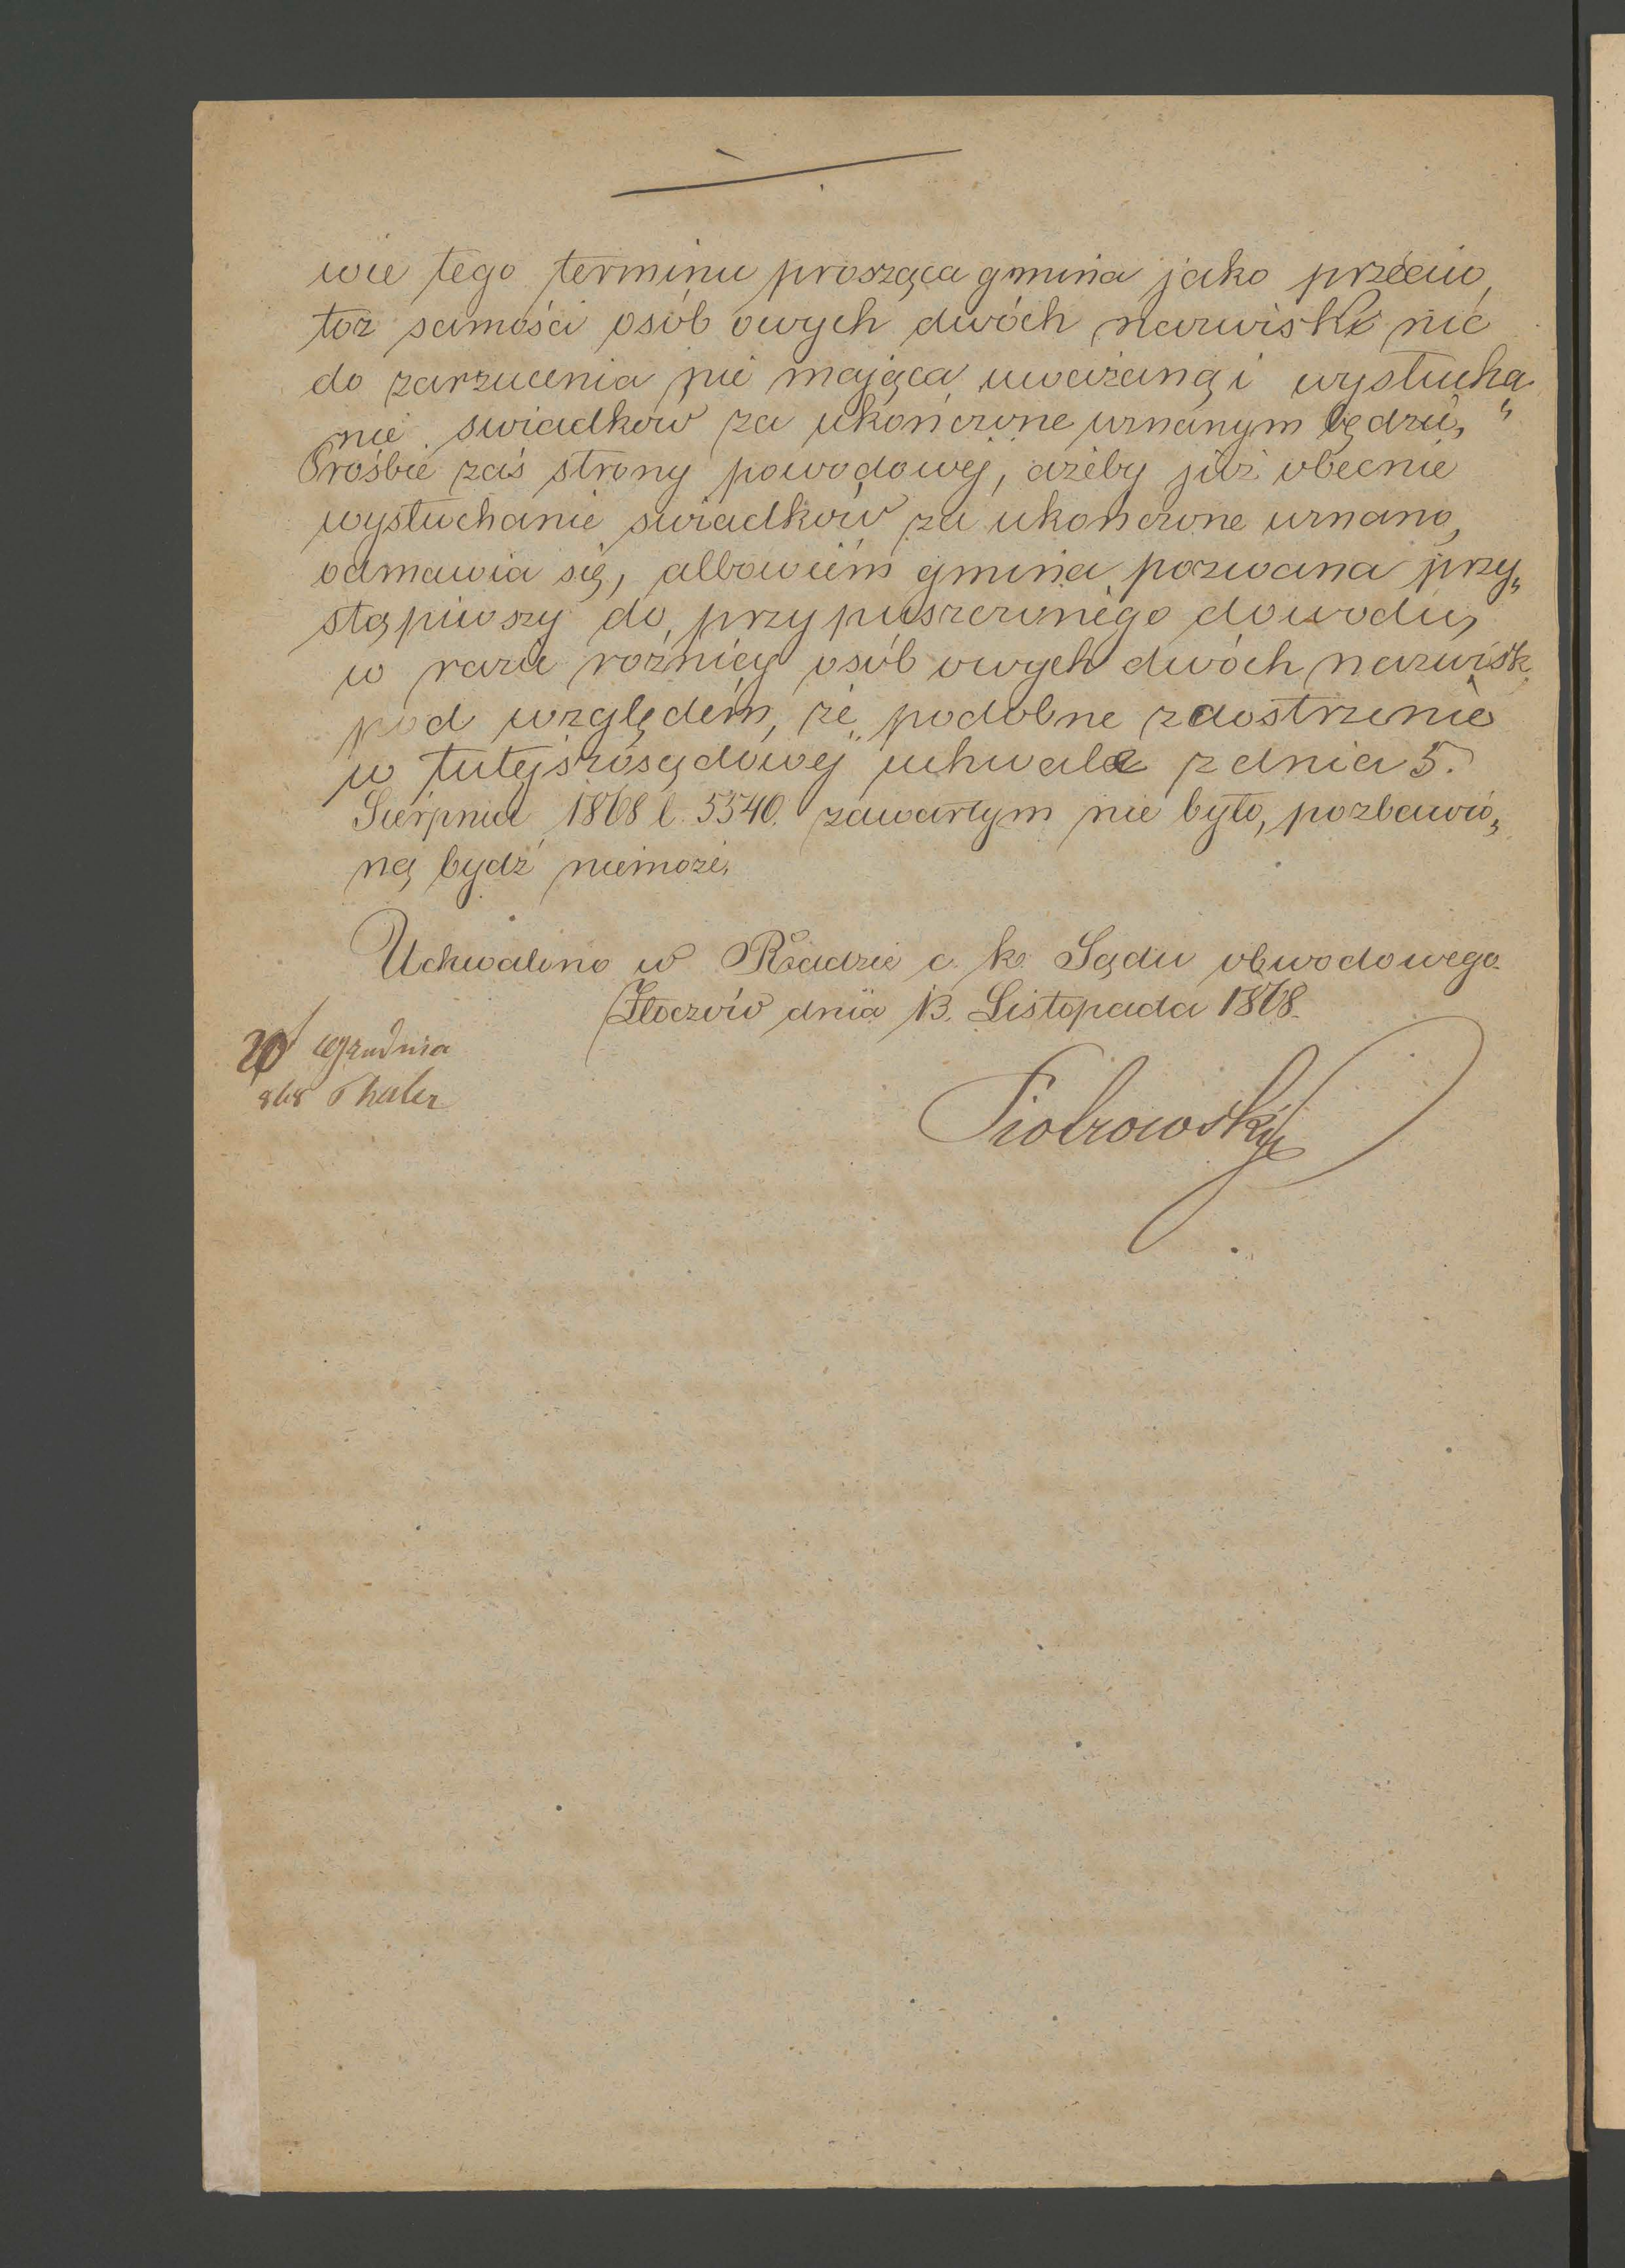 wie tego terminu prosząca gmina jako przeciw
toż samości osób owych dwóch nazwisk nic
do zarzucenia nie mająca uważaną i wysłucha
nie swiadkow za ukończone uznanym będzie,"
Prośbie zaś strony powodowej, ażeby już obecnie
wysłuchanie swiadków za ukonczone uznano,
odmawia się, albowiem gmina pozwana przy„
stąpiwszy do przypuszczonego dowodu,
w razie rożnicy osób owych dwóch nazwisk
pod względem, że podobne zaostrzenie
w tutejszosądowej uchwale z dnia 5.
Sierpnia 1868 l. 5540. zawartym nie było, pozbawio„
ną bydź niemoże.
Uchwalono w Radzie c. k. Sądu obwodowego
Złoczów dnia 13. Listopada 1868.
20 Grudnia
868 Thaler
Piotrowski